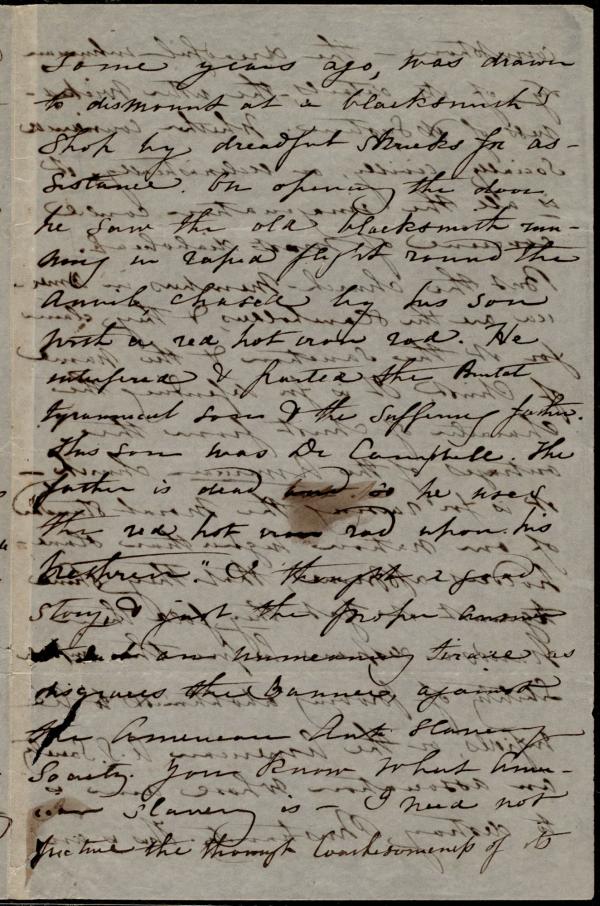 Some years ago, was drawn
to dismount at a blacksmith's
shop by dreadful shrieks for as-
sistance. On opening the door
he saw the old blacksmith run-
ning in rapid flight round the
anvil chased by his son
with a red hot iron rod. He
interfered & parted the brutal
tyrannical son & the suffering father.
This son was Dr Campbell. The
father is dead, and so he uses
the red hot iron rod upon his
brethren." I thought a good
story, & just the proper answer
to such an unmeaning tirade as
disgraces the Banner, against
the American Anti Slavery
Society. You know what Amer-
ican slavery is - I need not
picture the thorough loathsomeness of it